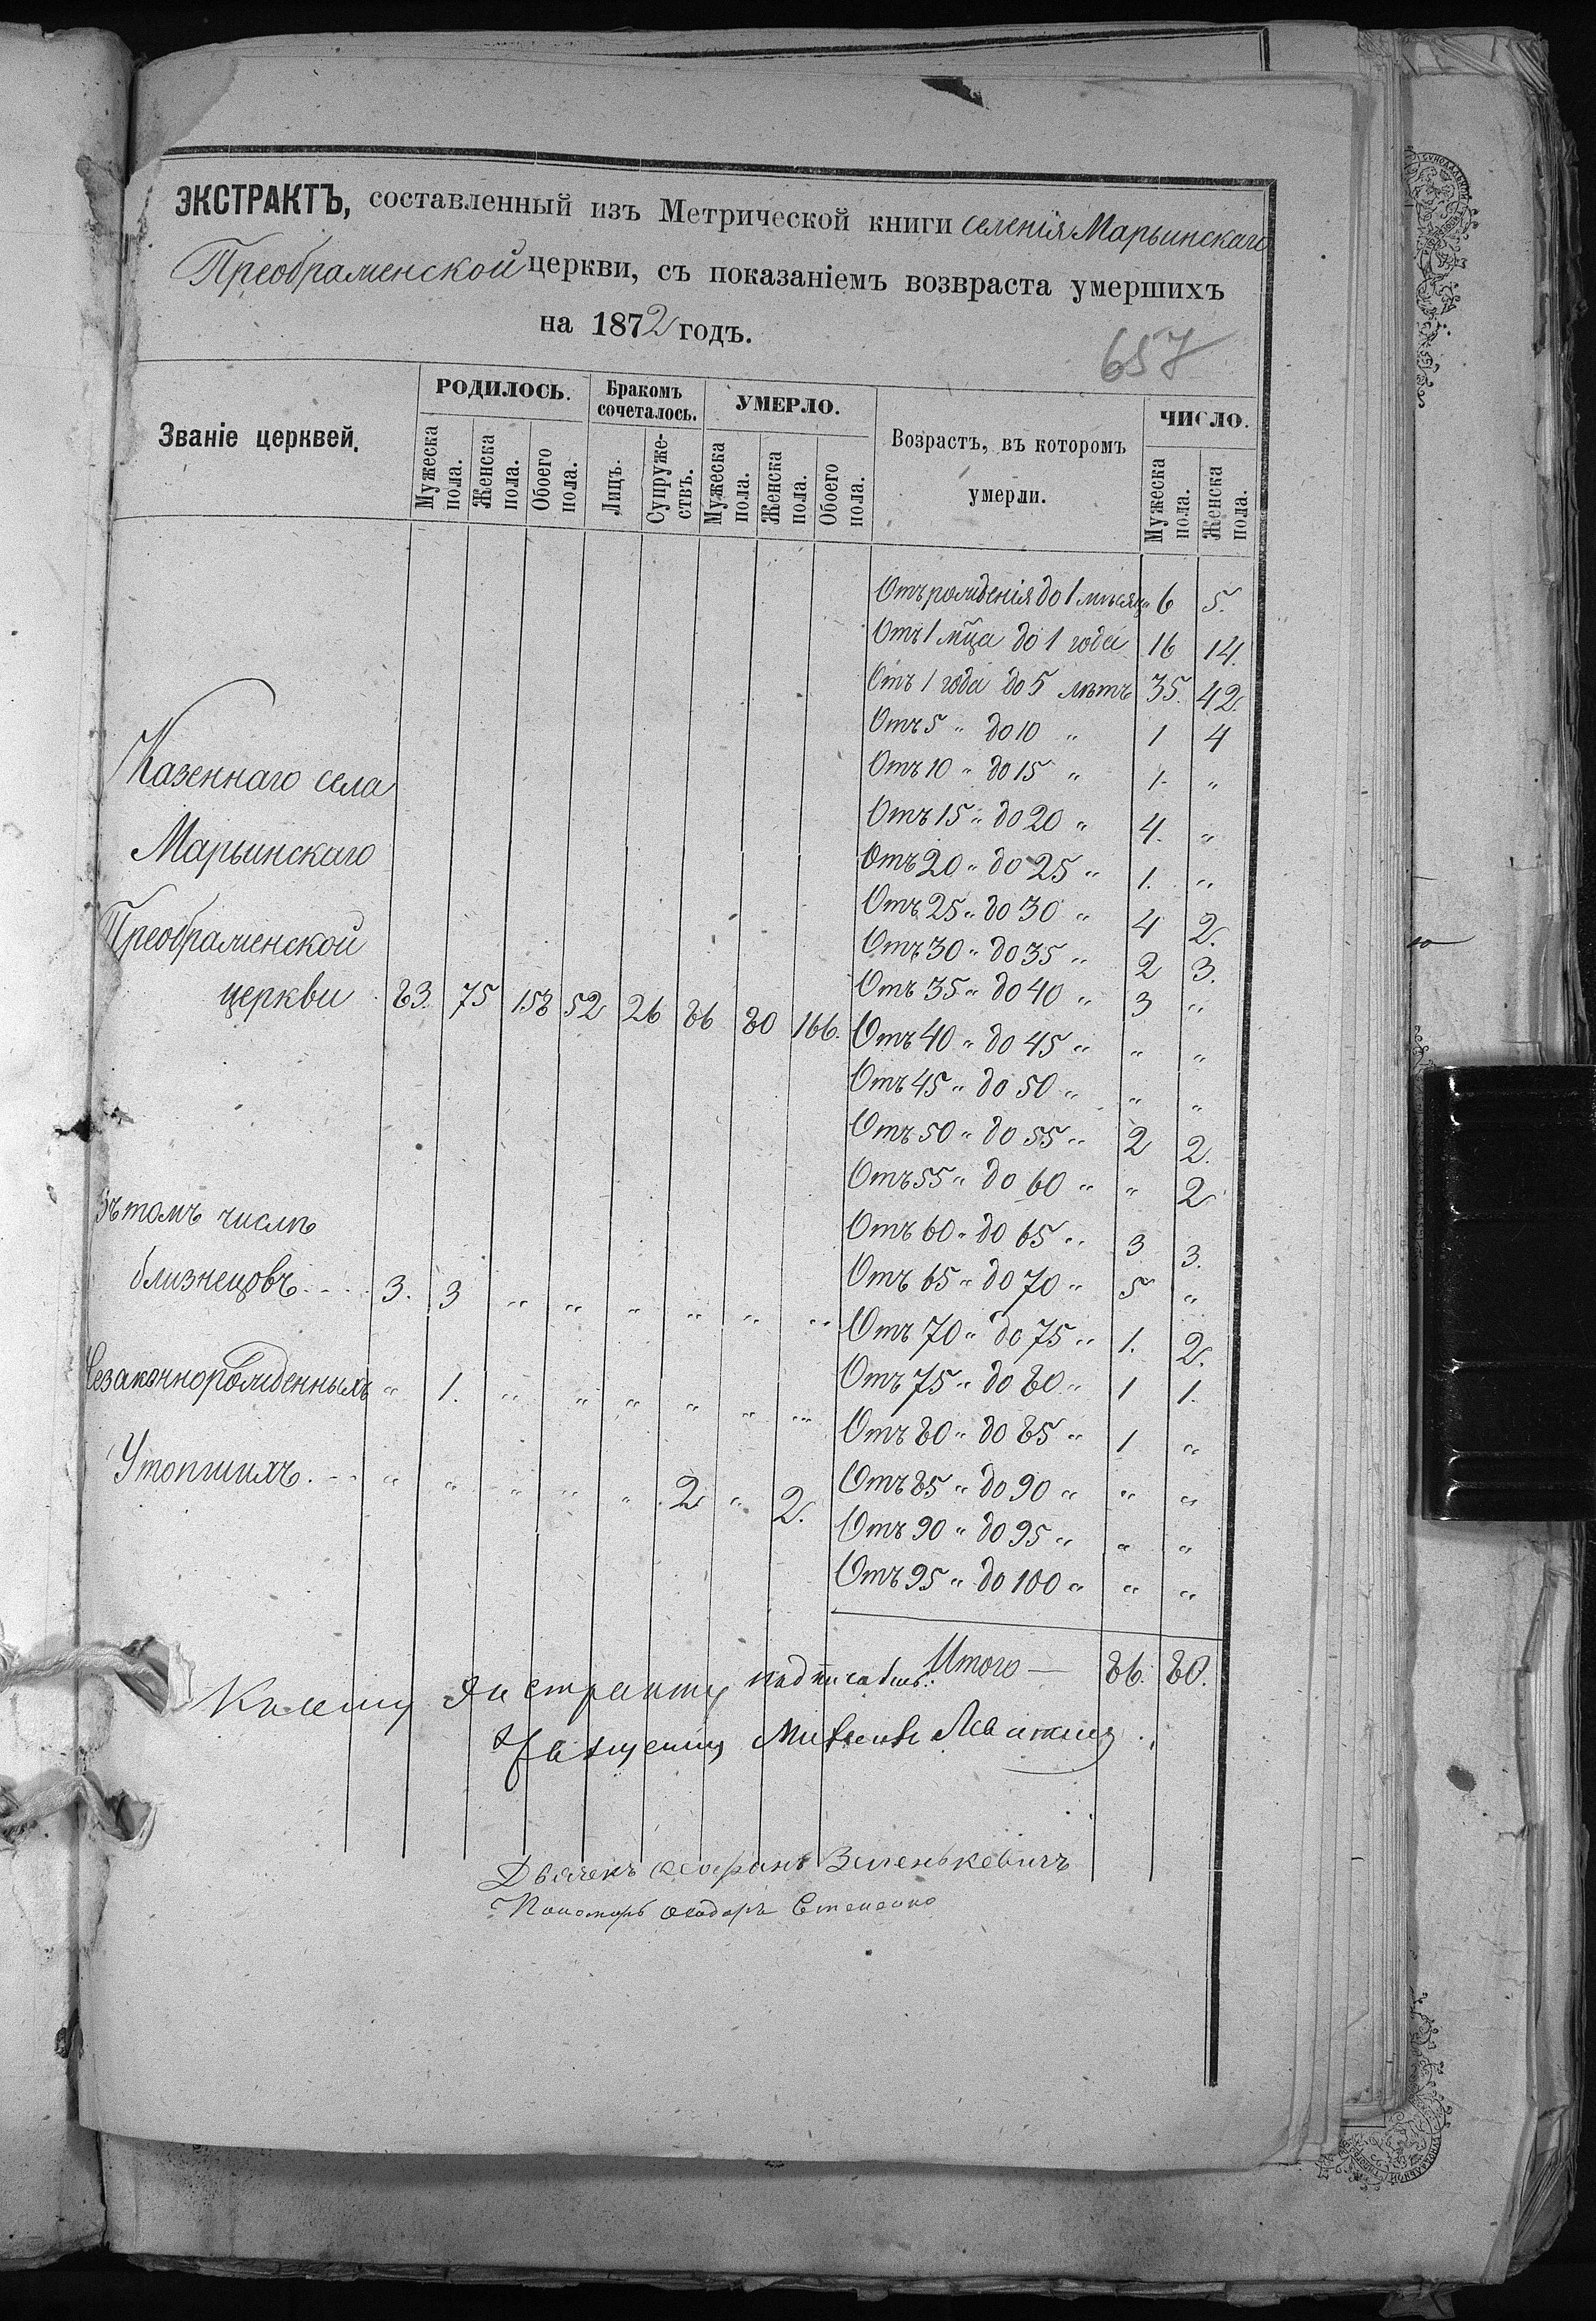 ЭКСТРАКТЪ, составленный изъ Метрической книги селенія Марьинскаго
Преображенской церкви, съ показаніемъ возвраста умершихъ
на 1872 годъ.
657
Званіе церквей. РОДИЛОСЬ. Бракомъ сочеталось. УМЕРЛО. Возрастъ, въ которомъ умерли. ЧИСЛО.
Мужеска пола. Женска пола. Обоего пола. Лицъ. Супружествъ. Мужеска пола. Женска пола. Обоего пола. Мужеска пола. Женска пола.
Отъ рожденія до 1 мѣсяца 6 5.
Отъ 1 мца до 1 года 16 14.
Отъ 1 года до 5 лѣтъ 35. 42.
Отъ 5 " до 10 " 1 4
Казеннаго села
Отъ 10 " до 15 " 1. "
Отъ 15 " до 20 " 4. "
Марьинскаго
Отъ 20 " до 25 " 1. "
Отъ 25 " до 30 " 4 2.
Преображенской
Отъ 30 " до 35 " 2 3.
Отъ 35 " до 40 " 3 "
церкви 83. 75 158 52 26 86 80 166.
Отъ 40 " до 45 " " "
Отъ 45 " до 50 " " "
Отъ 50 " до 55 " 2 2.
Отъ 55 " до 60 " " 2
Въ томъ числѣ
Отъ 60 " до 65 " 3 3.
близнецовъ 3. 3 " " " " " "
Отъ 65 " до 70 " 5 "
Отъ 70 " до 75 " 1. 2.
Незаконнорожденныхъ " 1. " " " " " "
Отъ 75 " до 80 " 1 1.
Отъ 80 " до 85 " 1 "
Утопшихъ " " " " " 2 " 2.
Отъ 85 " до 90 " " "
Отъ 90 " до 95 " " "
Отъ 95 " до 100 " " "
Итого — 86. 80.
Къ сему экстракту подписались:
Священникъ
Дьячекъ Зеленькевичъ
Пономарь Ѳеодоръ Степенко